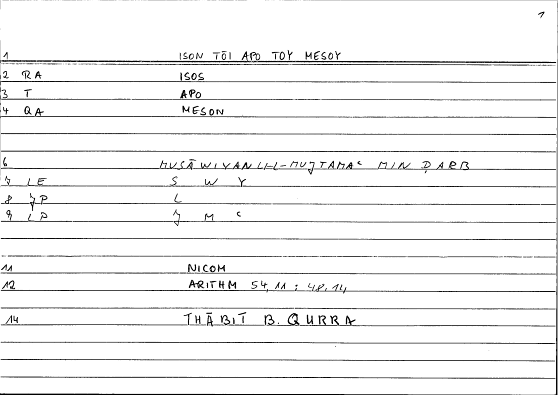 1
1 ISON TŌI APO TOY MESOY
2 RA ISOS
3 T APO
4 QA MESON
6 MUSĀWIYAN LI-L-MUǦTAMAʿ MIN ḌARB
7 LE S W Y
8 ǦP L
9 LP Ǧ M ʿ
11 NICOM
12 ARITHM 54,11 : 48,14
14 THĀBIT B. QURRA